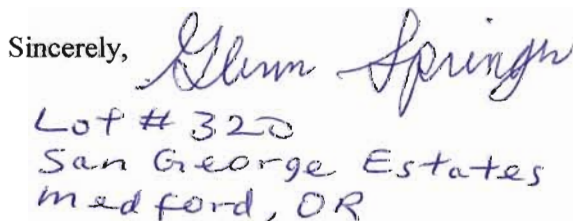 Sincerely, Glenn Springer
Lot # 320
San George Estates
Medford, OR